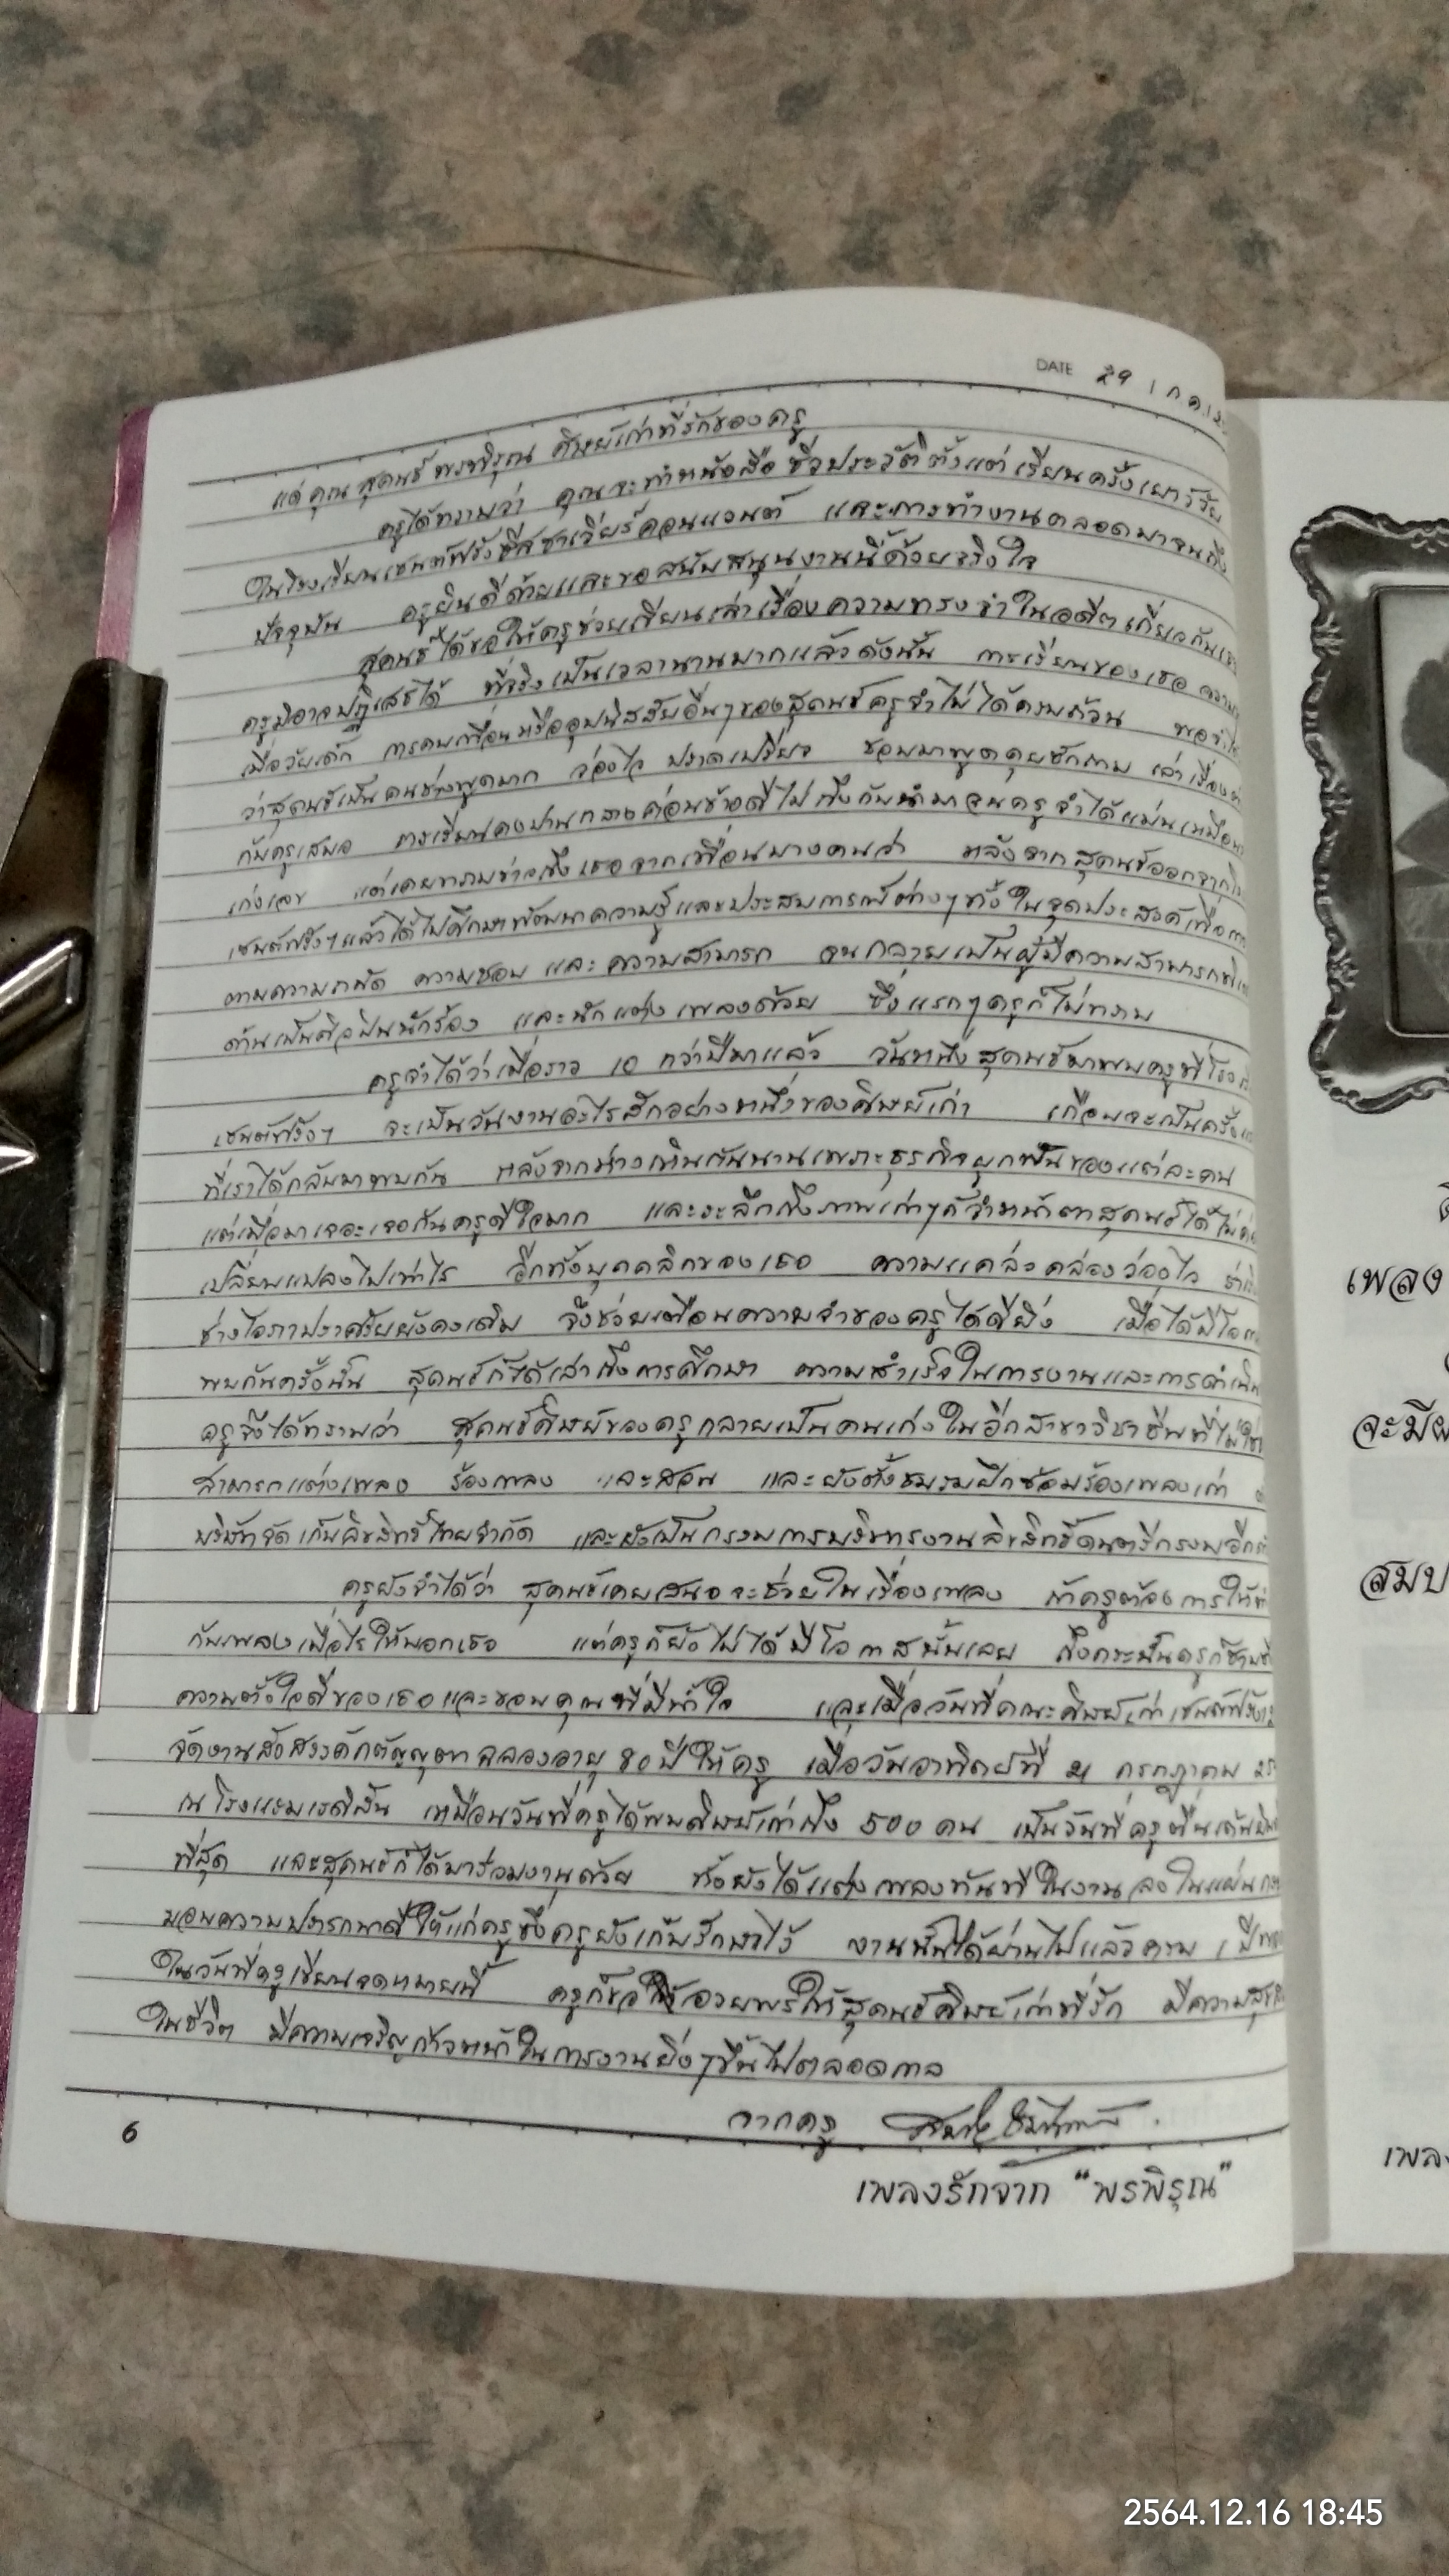 DATE 29 / ก.ค. /
แด่ คุณ สุคนธ์ พรพิรุณ ศิษย์เก่าที่รักของครู
ครูได้ทราบว่า คุณจะทำหนังสือ ชีวประวัติตั้งแต่เรียนครั้งเยาว์วัย
ในโรงเรียนเซนต์ฟรังซีสซาเวียร์คอนแวนต์ และการทำงานตลอดมาจนถึง
ปัจจุบัน ครูยินดีด้วยและขอสนับสนุนงานนี้ด้วยจริงใจ
สุคนธ์ได้ขอให้ครูช่วยเขียนเล่าเรื่องความทรงจำในอดีตเกี่ยวกับ
ครูมิอาจปฏิเสธได้ ที่จริงเป็นเวลานานมากแล้วดังนั้น การเรียนของเธอ
เมื่อวัยเด็ก การคบเพื่อนหรืออุปนิสสัยอื่นๆของสุคนธ์ครูจำไม่ได้ครบถ้วน
ว่าสุคนธ์เป็นคนช่างพูดมาก ว่องไว ปราดเปรียว ชอบมาพูดคุยซักถาม เล่าเรื่อง
กับครูเสมอ การเรียนคงปานกลางค่อนข้างดีไม่ถึงกับนำมาจนครูจำได้แม่นเหมือน
เก่งเลข แต่เคยทราบข่าวถึงเธอจากเพื่อนบางคนว่า หลังจากสุคนธ์ออกจาก
เซนต์ฟรังฯแล้วได้ไปศึกษาพัฒนาความรู้และประสบการณ์ต่างๆทั้งในจุดประสงค์เพื่อ
ตามความถนัด ความชอบ และความสามารถ จนกลายเป็นผู้มีความสามารถ
ด้านเป็นศิลปินนักร้อง และนักแต่งเพลงด้วย ซึ่งแรกๆครูก็ไม่ทราบ
ครูจำได้ว่าเมื่อราว 10 กว่าปีมาแล้ว วันหนึ่งสุคนธ์มาพบครูที่
เซนต์ฟรังฯ จะเป็นวันงานอะไรสักอย่างหนึ่งของศิษย์เก่า เกือบจะเป็นครั้ง
ที่เราได้กลับมาพบกัน หลังจากห่างเหินกันนานเพราะธุรกิจผูกพันของแต่ละคน
แต่เมื่อมาเจอะเจอกันครูดีใจมาก และระลึกถึงภาพเก่าๆก็จำหน้าตาสุคนธ์ได้
เปลี่ยนแปลงไปเท่าไร อีกทั้งบุคคลิกของเธอ ความแคล่วคล่องว่องไว
ช่างโอภาปราศรัยยังคงเดิม จึงช่วยเตือนความจำของครูได้ดียิ่ง เมื่อได้มี
พบกันครั้งนั้น สุคนธ์ก็ได้เล่าถึงการศึกษา ความสำเร็จในการงานและการ
ครูจึงได้ทราบว่า สุคนธ์ศิษย์ของครูกลายเป็นคนเก่งในอีกสาขาวิชาชีพที่
สามารถแต่งเพลง ร้องเพลง และสอน และยังตั้งชมรมฝึกซ้อมร้องเพลงเก่า
บริษัทจัดเก็บลิขสิทธิ์ไทยจำกัด และยังเป็นกรรมการบริหารงานลิขสิทธิ์ดนตรีกรม
ครูยังจำได้ว่า สุคนธ์เคยเสนอจะช่วยในเรื่องเพลง ถ้าครูต้องการให้
กับเพลงเมื่อไรให้บอกเธอ แต่ครูก็ยังไม่ได้มีโอกาสนั้นเลย ถึงกระนั้นครูก็
ความตั้งใจดีของเธอและขอบคุณที่มีน้ำใจ และเมื่อวันที่คณะศิษย์เก่า
จัดงานสังสรรค์กตัญญุตา ฉลองอายุ 80 ปีให้ครู เมื่อวันอาทิตย์ที่ 21 กรกฎาคม
ณ โรงแรมเรดิสัน เหมือนวันที่ครูได้พบศิษย์เก่าถึง 500 คน เป็นวันที่ครูตื่นเต้น
ที่สุด และสุคนธ์ก็ได้มาร่วมงานด้วย ทั้งยังได้แต่งเพลงทันทีในงาน ลงในแผ่น
มอบความปรารถนาดีให้แก่ครูซึ่งครูยังเก็บรักษาไว้ งานนั้นได้ผ่านไปแล้วครบ 1 ปี
ในวันที่ครูเขียนจดหมายนี้ ครูก็ขอให้อวยพรให้สุคนธ์ศิษย์เก่าที่รัก มีความสุข
ในชีวิต มีความเจริญก้าวหน้าในการงานยิ่งๆขึ้นไปตลอดกาล
จากครู
6
เพลงรักจาก "พรพิรุณ"
เพลง
จะมี
สมบ
2564.12.16 18:45